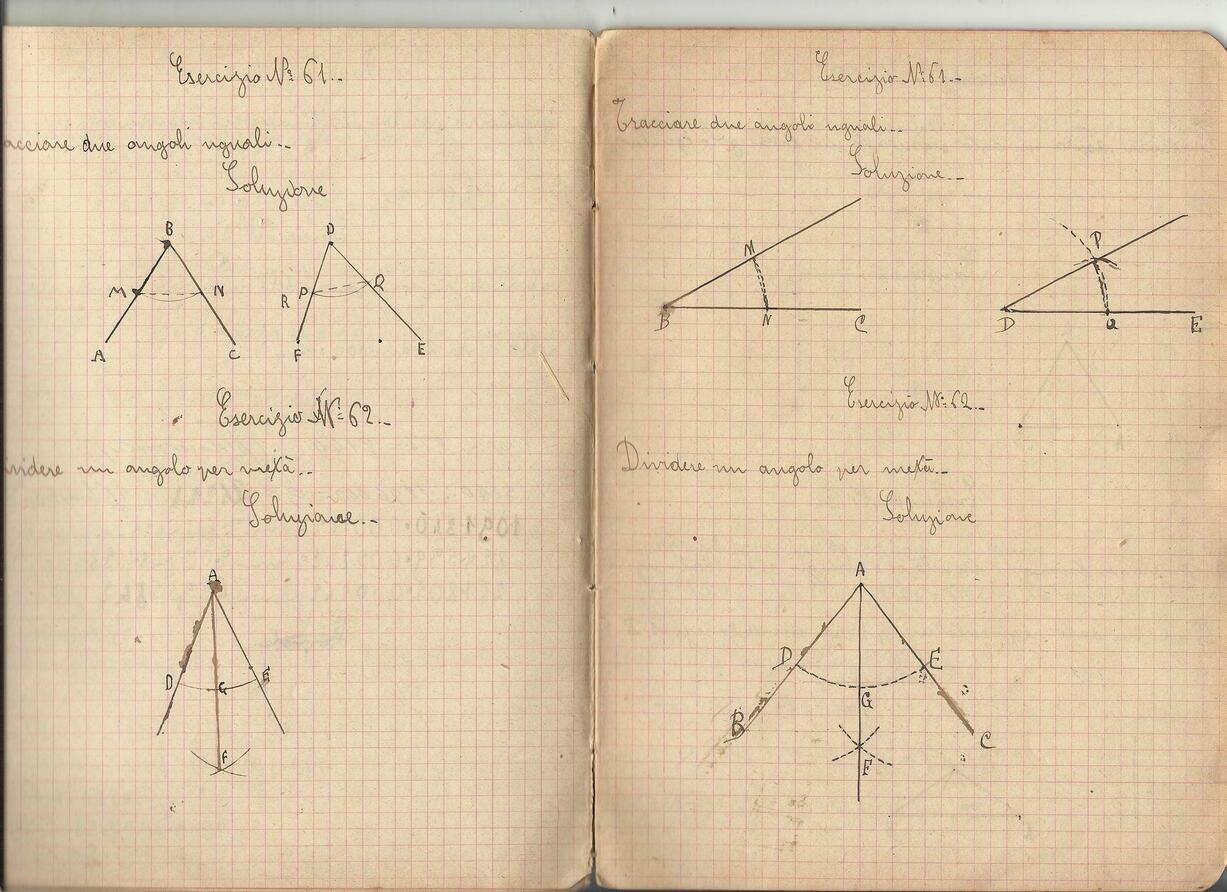 Esercizio Nº 61..
acciare due angoli uguali..
Soluzione
B
D
M
N
R
P
Q
A
C
F
E
Esercizio Nº 62..
ividere un angolo per metà..
Soluzione..
A
D
G
E
F
Esercizio Nº 61..
Tracciare due angoli uguali..
Soluzione..
M
P
B
N
C
D
Q
E
Esercizio Nº 62..
Dividere un angolo per metà..
Soluzione
A
D
E
G
B
C
F